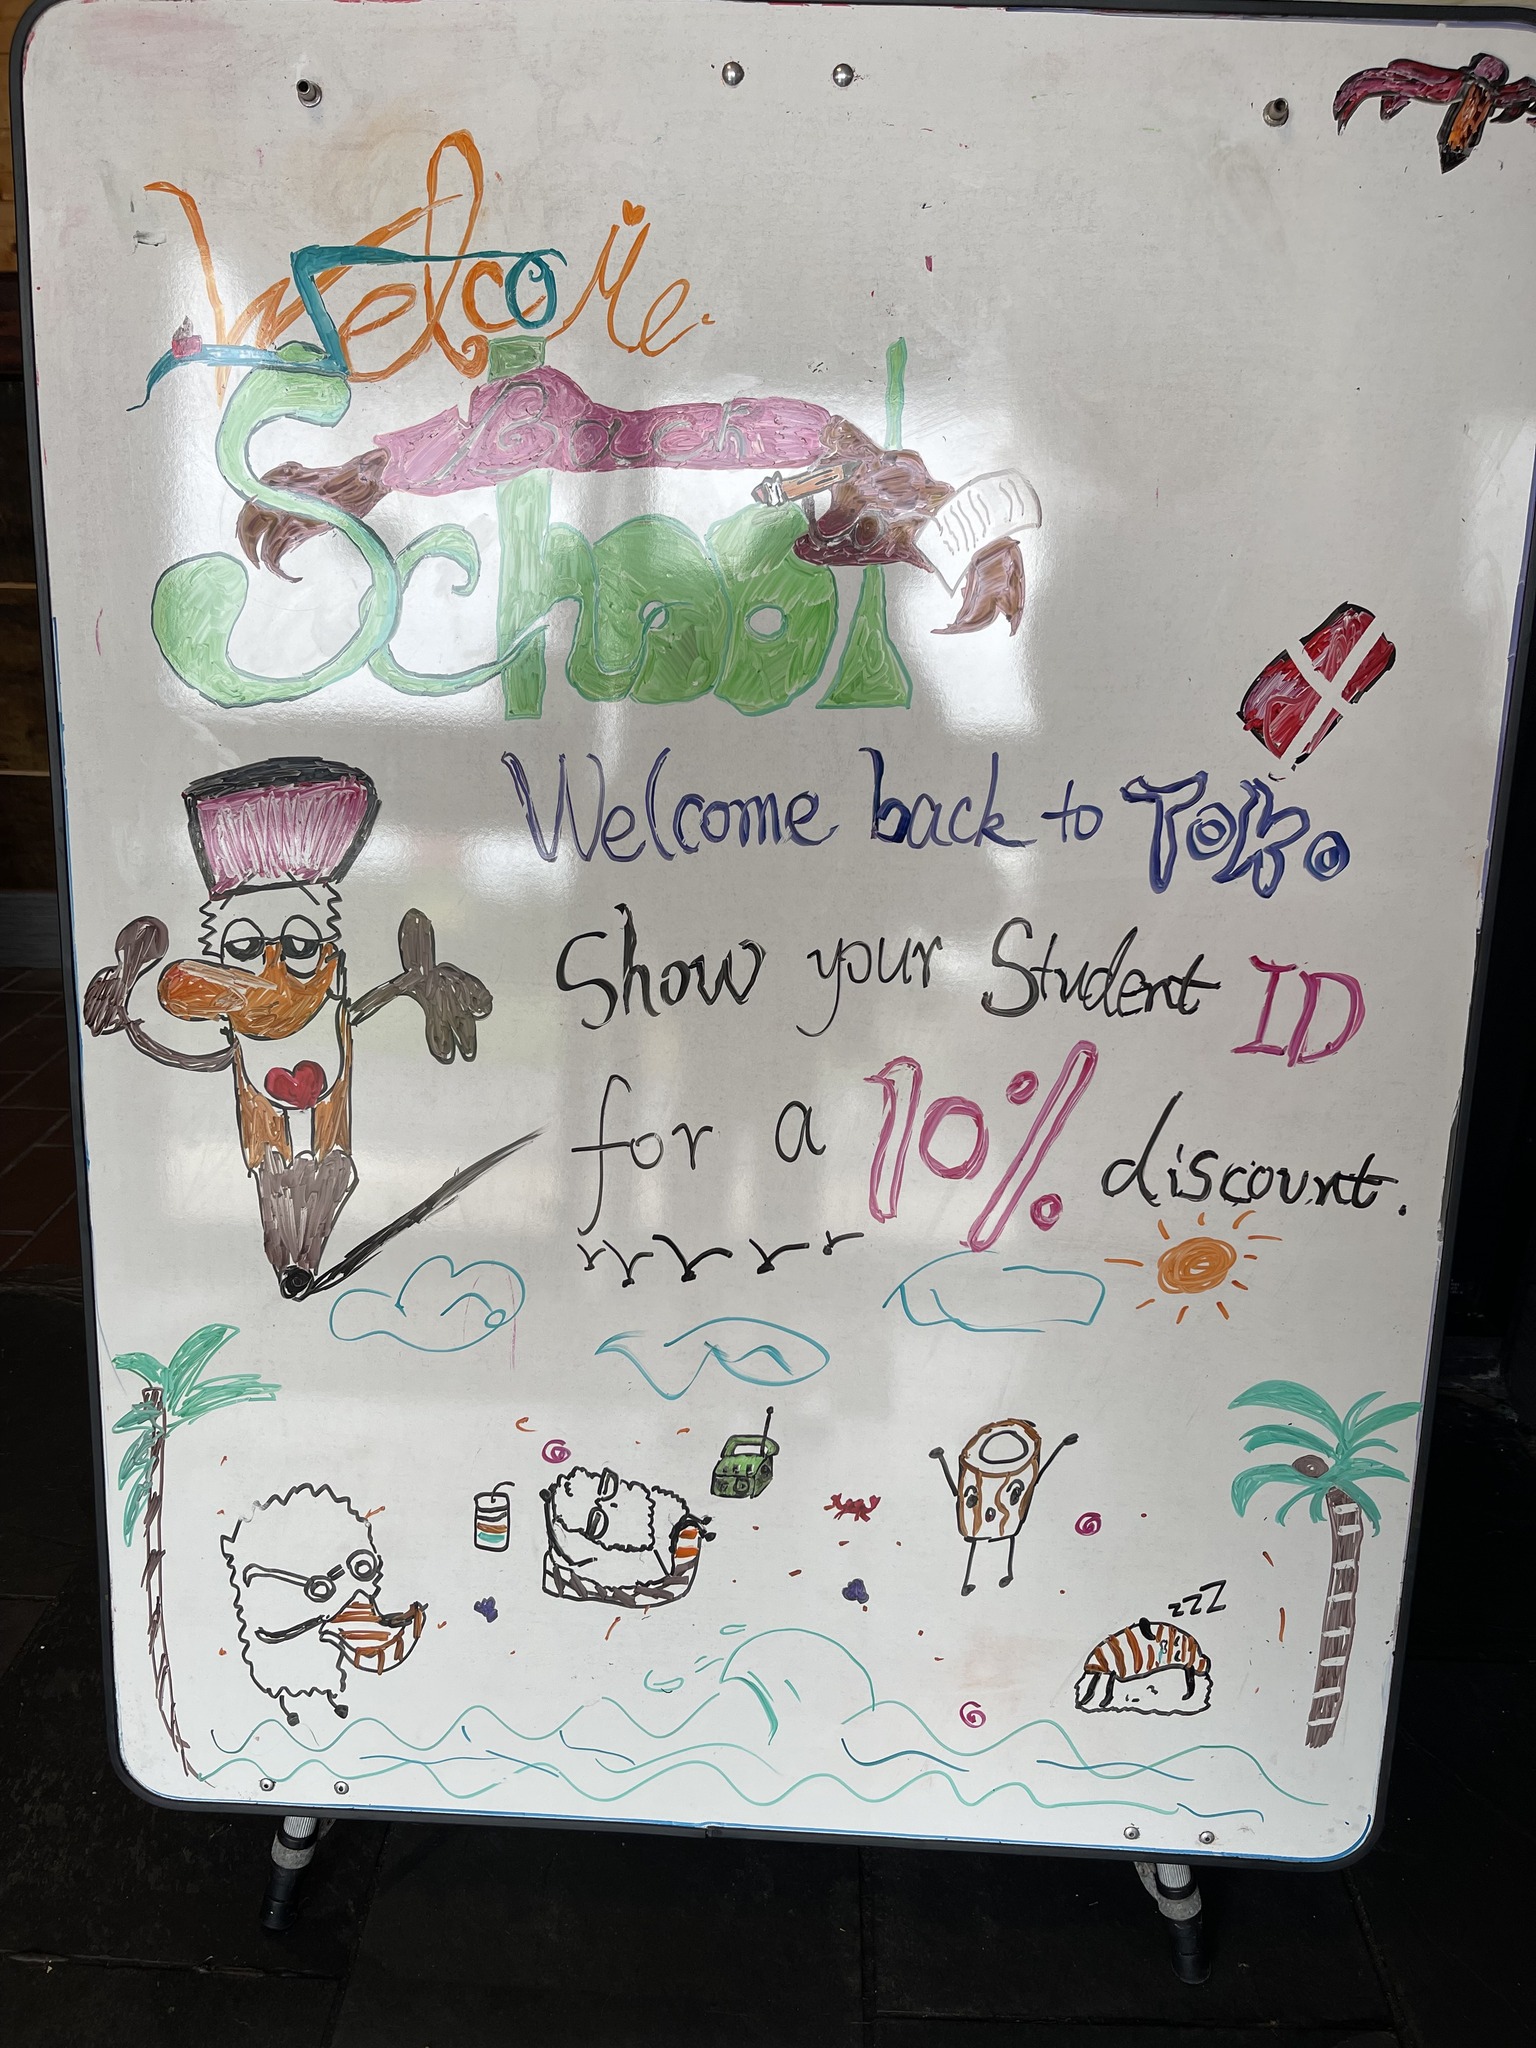 Welcome
Back
School
Welcome back to Toko
Show your Student ID
for a 10% discount.
zzZ